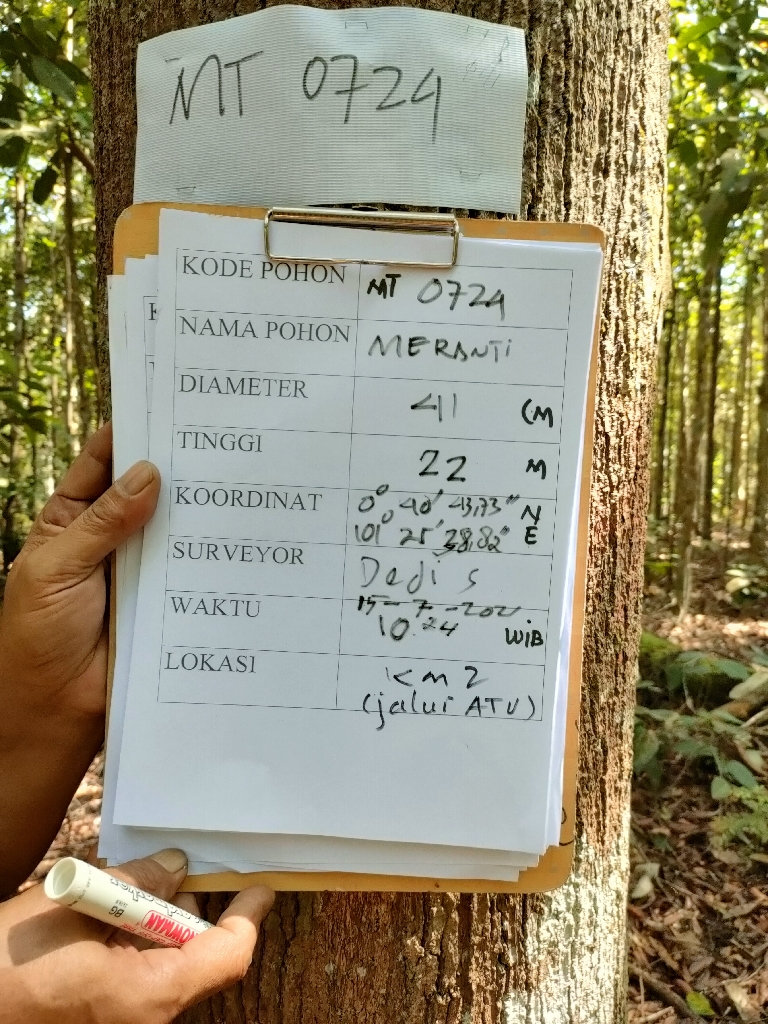 MT 0724
KODE POHON MT 0724
NAMA POHON MERANTI
DIAMETER 41 CM
TINGGI 22 M
KOORDINAT 0° 40' 43,73" N
101° 25' 28,82" E
SURVEYOR Dedi S
WAKTU 15-7-202
10.24 WIB
LOKASI KM 2
(jalur ATV)
SNOWMAN
BG